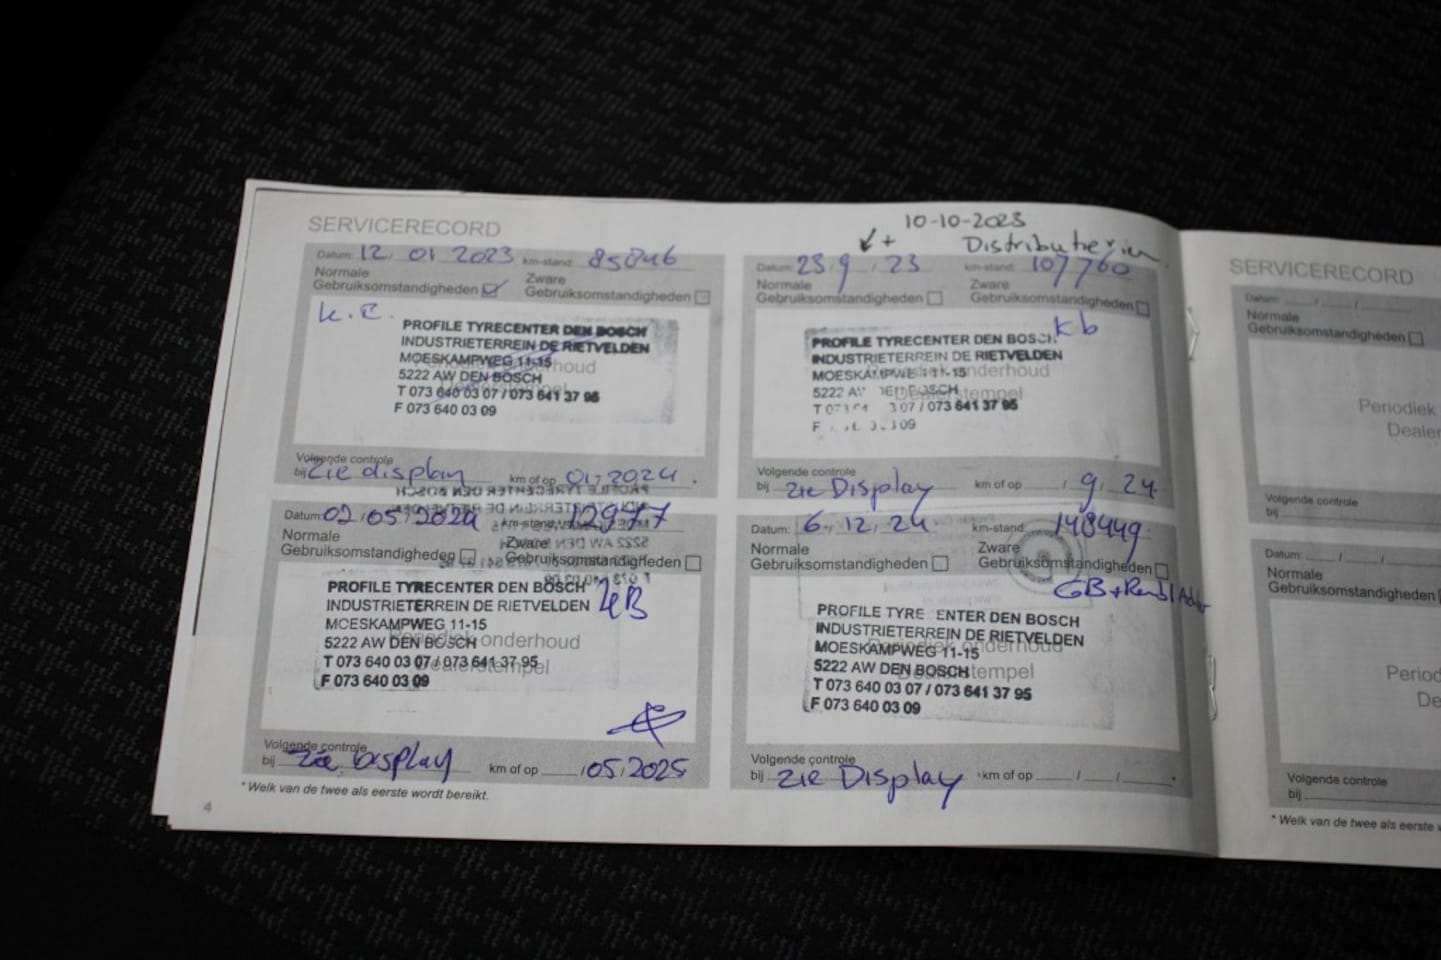 SERVICERECORD
Datum: 12, 01 2023 km-stand: 85046
Normale
Gebruiksomstandigheden
Zware
Gebruiksomstandigheden
PROFILE TYRECENTER DEN BOSCH
INDUSTRIETERREIN DE RIETVELDEN
MOESKAMPWEG 11-15
5222 AW DEN BOSCH
T 073 640 03 07 / 073 641 37 95
F 073 640 03 09
Volgende controle
bij zie display km of op 01, 2024.
10-10-2023
+ Distributieriem
Datum: 23, 9, 23 km-stand: 107760
Normale
Gebruiksomstandigheden
Zware
Gebruiksomstandigheden
kb
PROFILE TYRECENTER DEN BOSCH
INDUSTRIETERREIN DE RIETVELDEN
MOESKAMPWEG 11-15
5222 AW DEN BOSCH
Periodiek onderhoud
Dealerstempel
07 / 073 641 37 95
Volgende controle
bij zie Display km of op / 9, 24
Datum: 02/05/2024 km-stand:
Normale
Gebruiksomstandigheden
Zware
Gebruiksomstandigheden
PROFILE TYRECENTER DEN BOSCH
INDUSTRIETERREIN DE RIETVELDEN
MOESKAMPWEG 11-15
5222 AW DEN BOSCH
Periodiek onderhoud
T 073 640 03 07 / 073 641 37 95
Dealerstempel
F 073 640 03 09
Volgende controle
bij zie Display km of op /05/2025
* Welk van de twee als eerste wordt bereikt.
4
Datum: 6, 12, 24 km-stand: 148449
Normale
Gebruiksomstandigheden
Zware
Gebruiksomstandigheden
GB +
PROFILE TYRE ENTER DEN BOSCH
INDUSTRIETERREIN DE RIETVELDEN
MOESKAMPWEG 11-15
5222 AW DEN BOSCH
T 073 640 03 07 / 073 641 37 95
F 073 640 03 09
Volgende controle
bij zie Display km of op / /
SERVICERECORD
Datum: / /
Normale
Gebruiksomstandigheden
Periodiek
Dealer
Volgende controle
bij
Datum: / /
Normale
Gebruiksomstandigheden
Period
De
Volgende controle
bij
* Welk van de twee als eerste